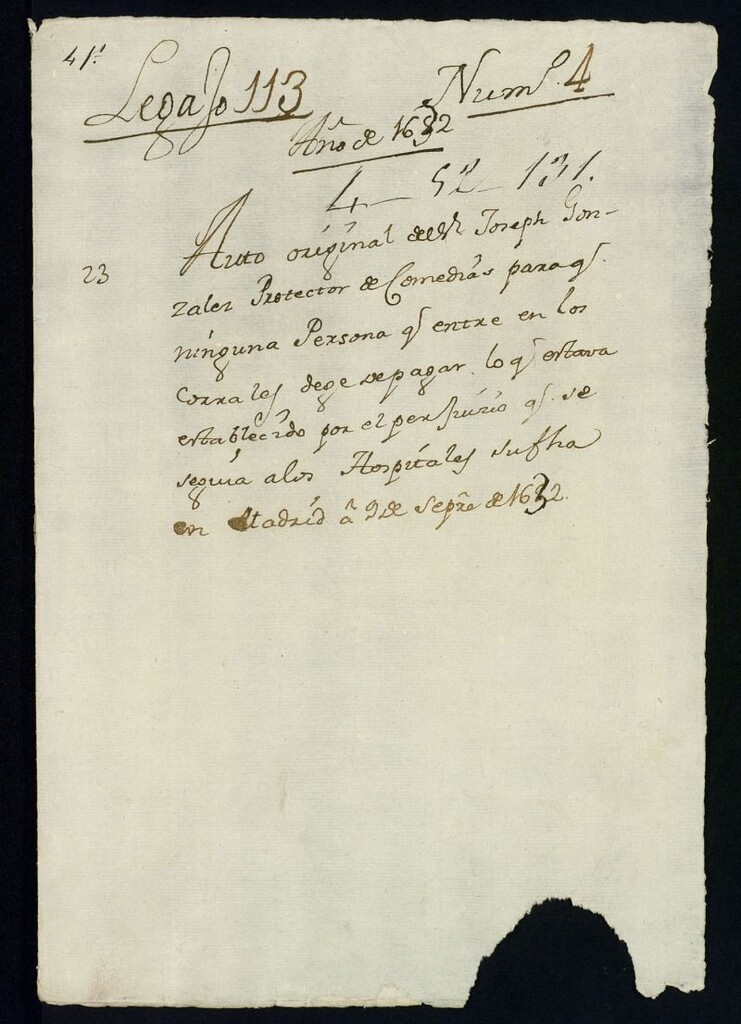 41ª
Legajo 113 Numº. 4
Año de 1632
4 — 52 — 131.
23
Auto original del Sr. Joseph Gon-
zalez Protector de Comedias para q.
ninguna Persona q entre en los
Corrales dege de pagar lo q estava
establecido por el perjuizio q. se
seguia alos Hospitales su fha
en Madrid â 9 de Sepre. de 1632.